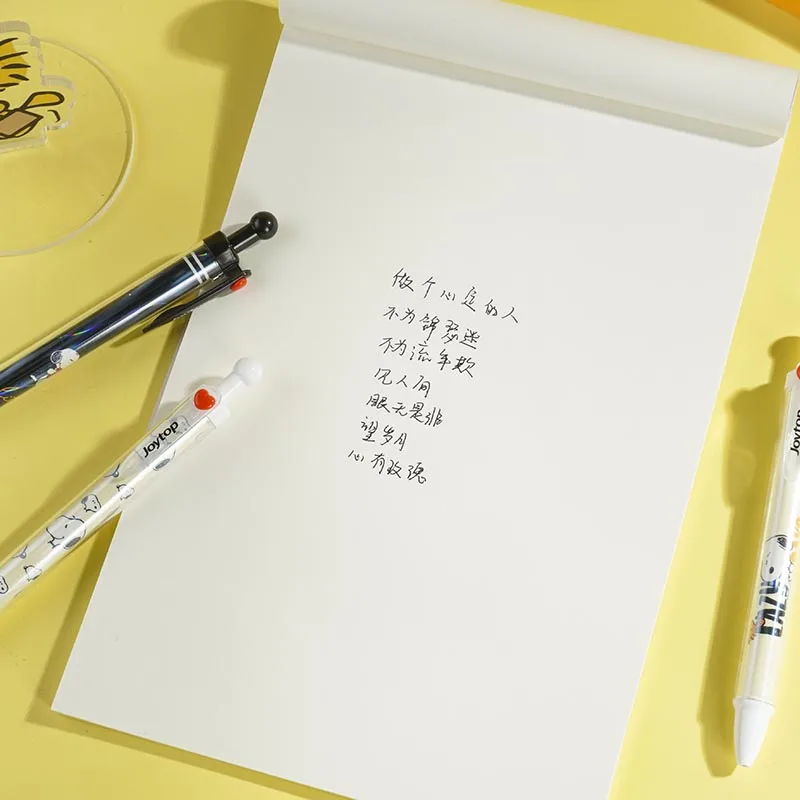 做个心定的人
不为锦瑟迷
不为流年欺
见人间
眼无是非
望岁月
心有玫瑰
Joytop
Joytop